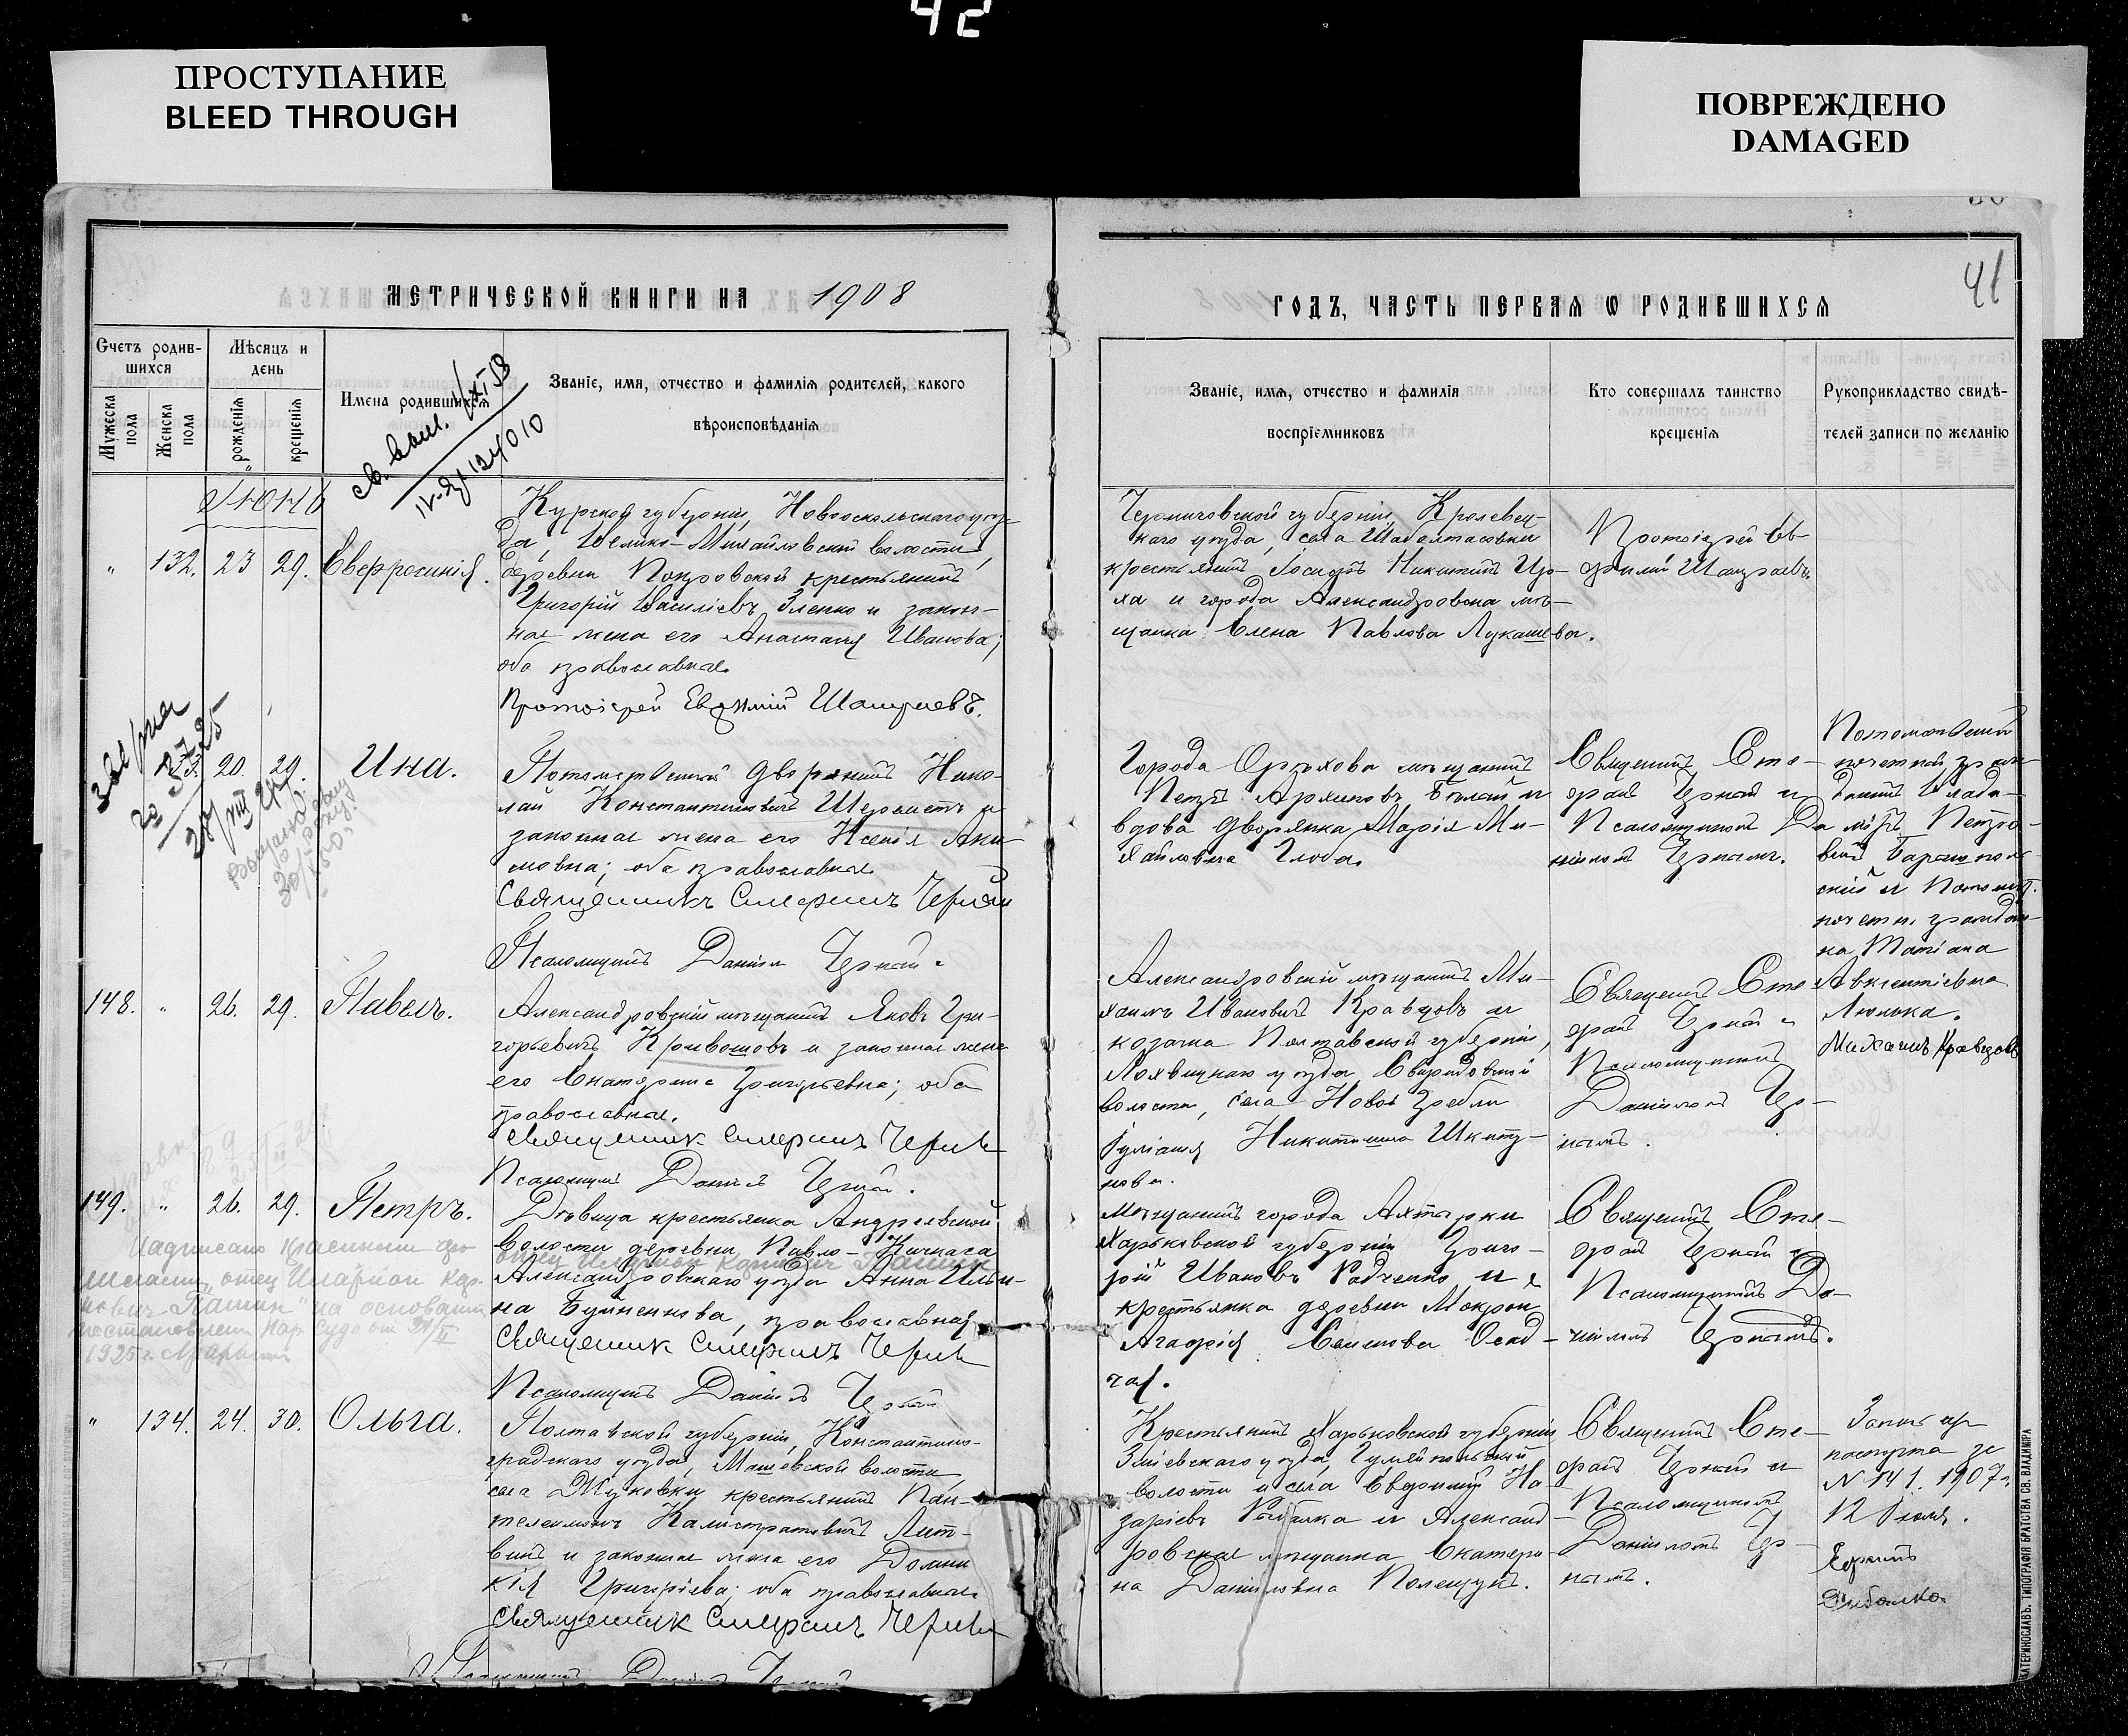 42
ПРОСТУПАНИЕ
BLEED THROUGH
ПОВРЕЖДЕНО
DAMAGED
41
МЕТРИЧЕСКОЙ КНИГИ НА 1908
ГОДЪ, ЧАСТЬ ПЕРВАЯ Ѡ РОДИВШИХСЯ
Счетъ родив-
шихся
Мужеска пола
Женска пола
Мѣсяцъ и
день
рожденія
крещенія
Имена родившихся
Званіе, имя, отчество и фамилія родителей, какого
вѣроисповѣданія
Званіе, имя, отчество и фамилія
воспріемниковъ
Кто совершалъ таинство
крещенія
Рукоприкладство свидѣ-
телей записи по желанію
" 132. 23 29. Евфросинія.
Курской губерніи, Новооскольскаго уѣз-
да, Велико-Михайловской волости,
деревни Покровской крестьянинъ
Григорій Василіевъ Зленко и закон-
ная жена его Анастасія Иванова;
оба православные.
Протоіерей Евфимій
Черниговской губерніи, Кролевец-
каго уѣзда, села
крестьянинъ Іосифъ Никитинъ
ха и города Александровска мѣ-
щанка Елена Павлова Лукашева.
Протоіерей Ев-
фимій
20. 29. Инна.
Потомственный дворянинъ Нико-
лай Константиновичъ Шереметъ и
законная жена его Ксенія Аки-
мовна; оба православные.
Священникъ Стефанъ Черный
Псаломщикъ Даніилъ Черный.
Города Орѣхова мѣщанинъ
Петръ Архиповъ Бѣлый и
вдова дворянка Марія Ми-
хайловна Глоба.
Священникъ Сте-
фанъ Черный и
Псаломщикомъ Да-
ніиломъ Чернымъ.
Потомственный
почетный граж-
данинъ Влади-
міръ Петро-
вичъ
скій и Потомст.
почетн. граждан-
ка Татіана
Авксентіевна
148. " 26. 29. Павелъ.
Александровскій мѣщанинъ Яковъ Гри-
горьевичъ Кривошовъ и законная жена
его Екатерина Григорьевна; оба
православные.
Священникъ Стефанъ Черный
Псаломщикъ Даніилъ Черный.
Александровскій мѣщанинъ Ми-
хаилъ Ивановичъ Кравцовъ и
козачка Полтавской губерніи,
Лохвицкаго уѣзда Свиридовской
волости, села Новой Гребли
Іуліанія Никитишна
нова.
Священникъ Сте-
фанъ Черный и
Псаломщикомъ
Даніиломъ Чер-
нымъ.
Михаилъ Кравцовъ
149. " 26. 29. Петръ.
Дѣвица крестьянка Андреевской
волости деревни Павло-Кичкаса
Александровскаго уѣзда Анна Ильи-
на православная
Священникъ Стефанъ Черный
Псаломщикъ Даніилъ Черный
Надписано красными чер-
нилами, отец Иларион Кар-
нович Пашин на основании
постановления Нар Суда от
1925 г.
Мѣщанинъ города Ахтырки
Харьковской губерніи Григо-
рій Ивановъ Радченко и
крестьянка деревни Мокрой
Агафія Осад-
чая.
Священникъ Сте-
фанъ Черный и
Псаломщикомъ Да-
ніиломъ Чернымъ.
" 134. 24. 30. Ольга.
Полтавской губерніи, Константино-
градскаго уѣзда, Машевской волости,
села Жуковки крестьянинъ Пан-
телеимонъ Калистратовичъ Лит-
винъ и законная жена его Домни-
кія Григоріева; оба православные.
Священникъ Стефанъ Черный
Псаломщикъ Даніилъ Черный
Крестьянинъ Харьковской губерніи
Зміевскаго уѣзда,
волости и села Ефремъ На-
заріевъ Рыбалка и Александ-
ровская мѣщанка Екатери-
на Даніиловна Полещукъ.
Священникъ Сте-
фанъ Черный и
Псаломщикомъ
Даніиломъ Чер-
нымъ.
паспорта за
N 141. 1907 г.
12 Іюля.
Рыбалко.
ЕКАТЕРИНОСЛАВЪ. ТИПОГРАФІЯ БРАТСТВА СВ. ВЛАДИМІРА